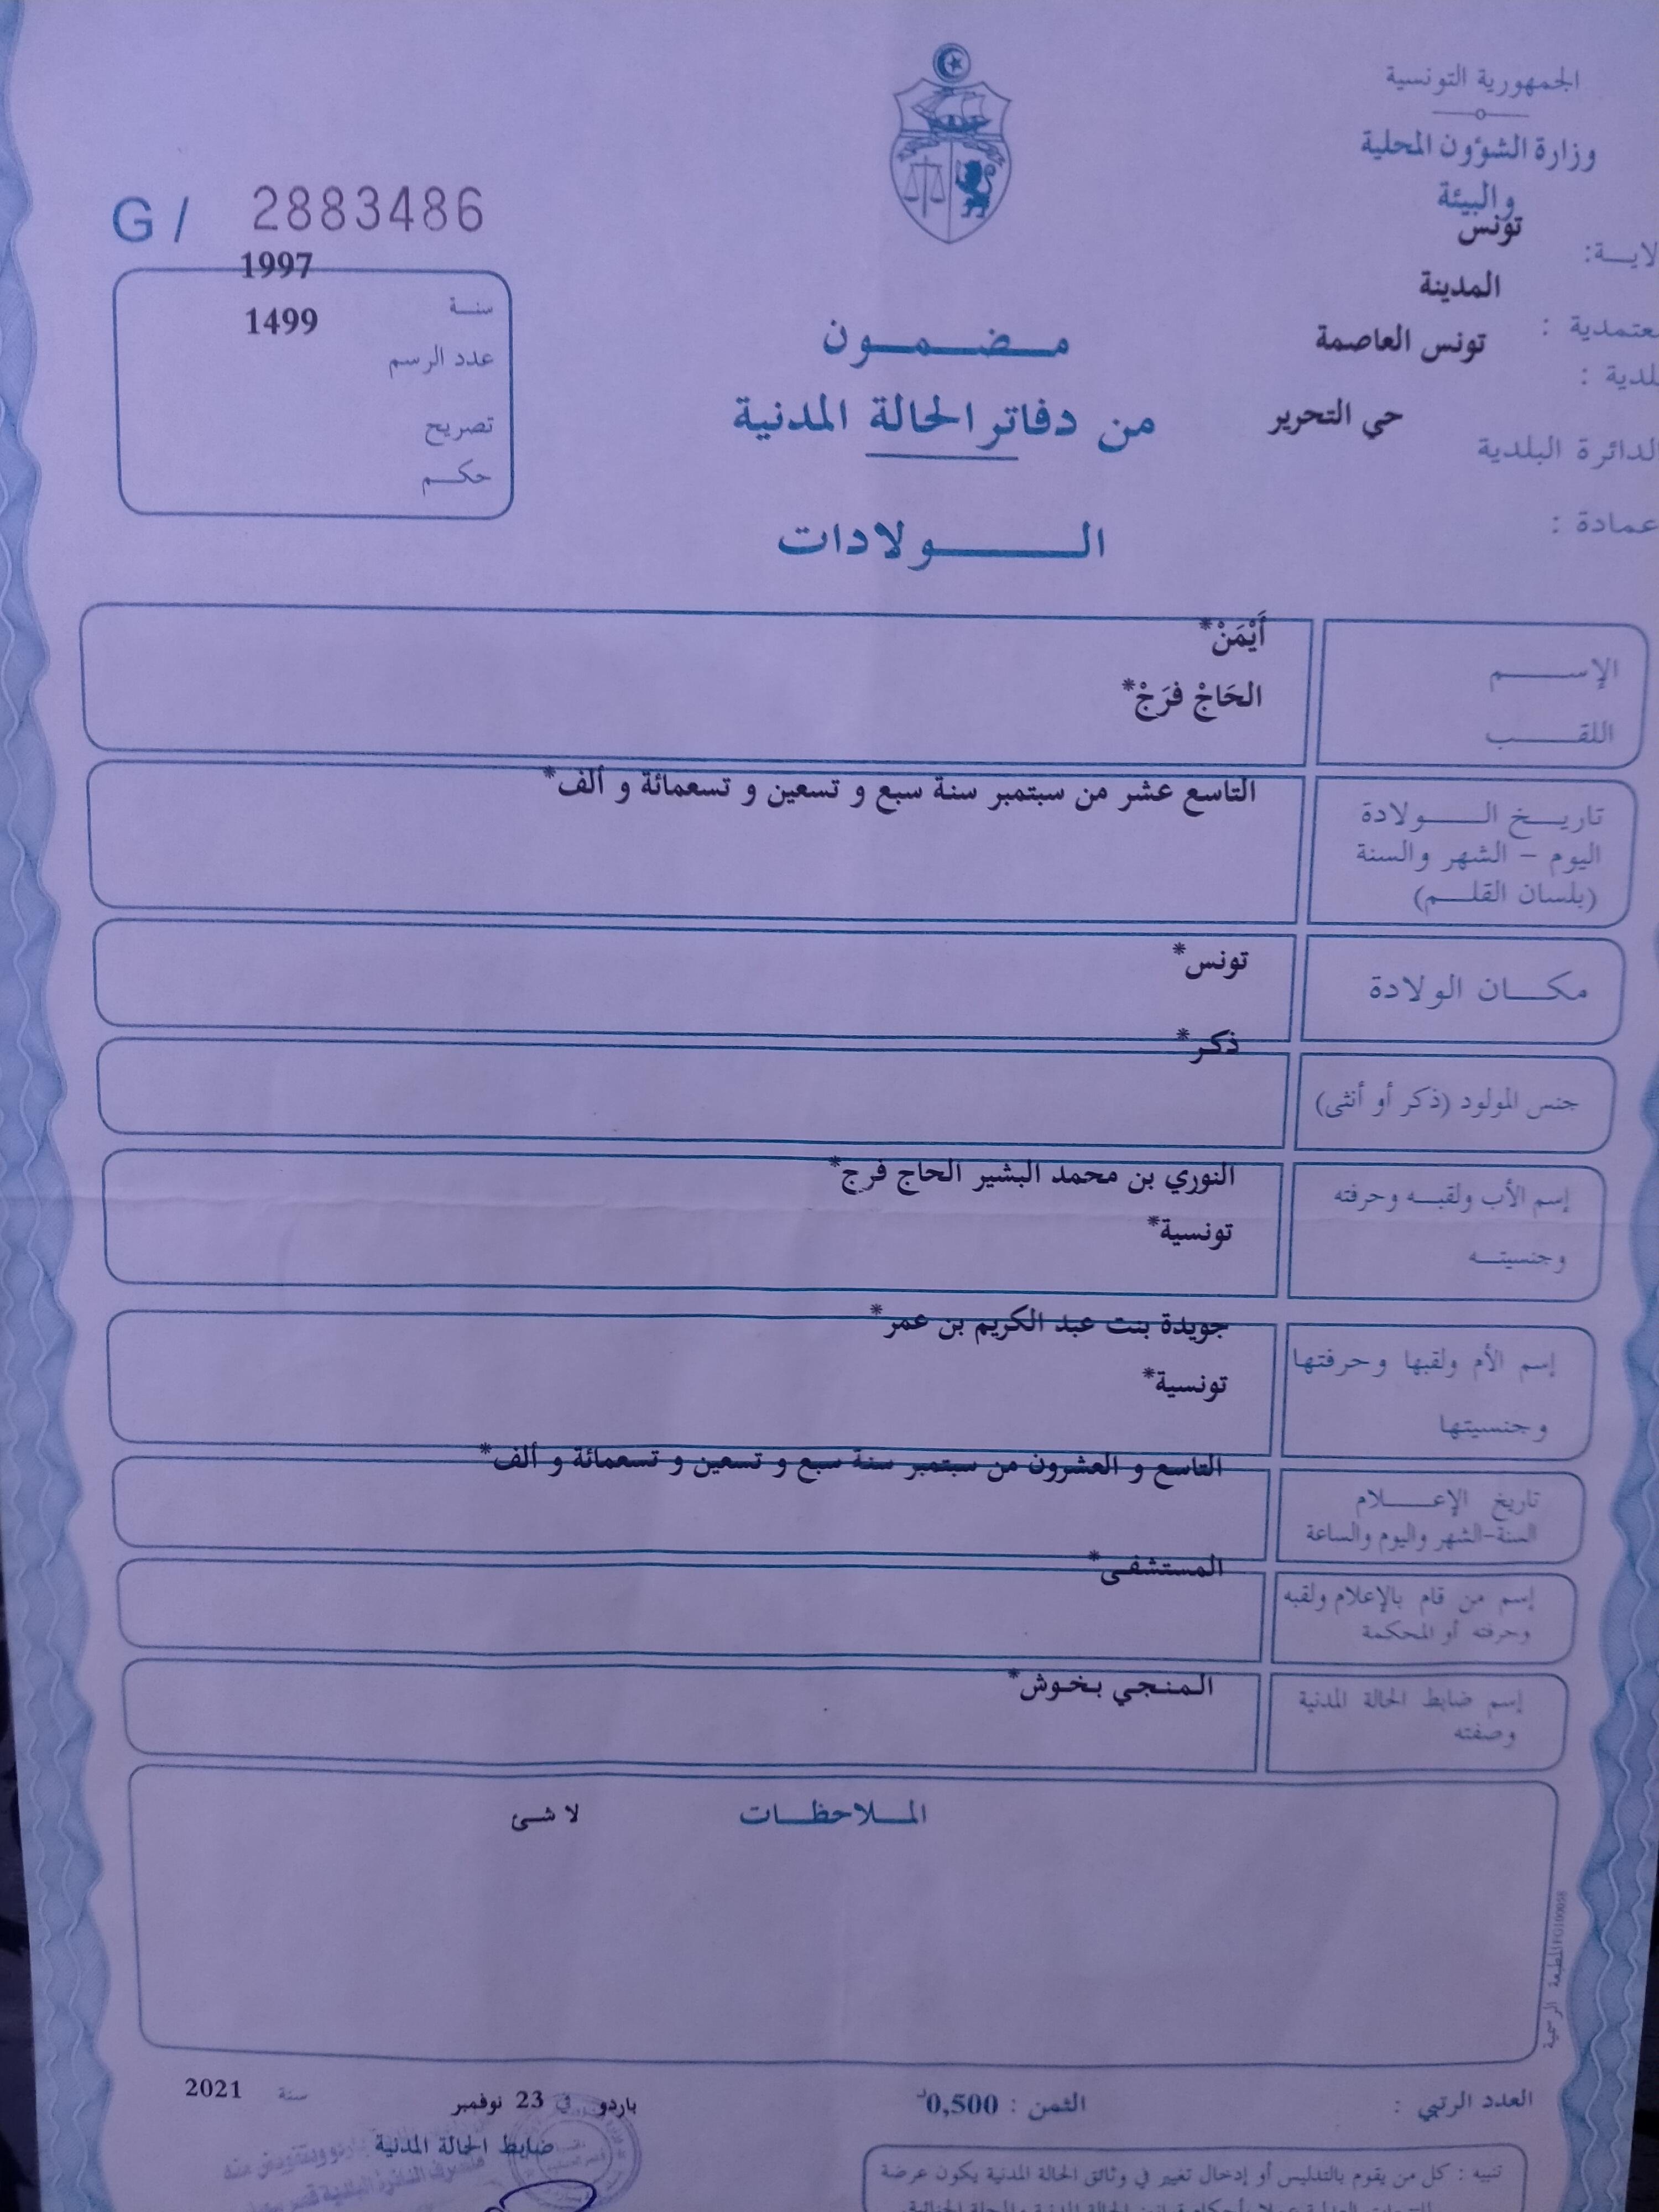 الجمهورية التونسية
وزارة الشؤون المحلية
والبيئة
لايـــة: تونس
عتمدية : المدينة
لدية : تونس العاصمة
لدائرة البلدية حي التحرير
عمادة :
G / 2883486
سنـــة 1997
عدد الرسم 1499
تصريح
حكـــم
مـــضـــمـــون
من دفاتر الحالة المدنية
الـــولادات
الإســـم أَيْمَنْ*
اللقـــب الحَاجْ فرَجْ*
تاريـــخ الـــولادة التاسع عشر من سبتمبر سنة سبع و تسعين و تسعمائة و ألف*
اليوم – الشهر والسنة
(بلسان القلـــم)
مكـــان الولادة تونس*
جنس المولود (ذكر أو أنثى) ذكر*
إسم الأب ولقبـــه وحرفته النوري بن محمد البشير الحاج فرج*
وجنسيتـــه تونسية*
إسم الأم ولقبها وحرفتها جويدة بنت عبد الكريم بن عمر*
وجنسيتها تونسية*
تاريخ الإعـــلام التاسع و العشرون من سبتمبر سنة سبع و تسعين و تسعمائة و ألف*
السنة-الشهر واليوم والساعة
إسم من قام بالإعلام ولقبه المستشفى*
وحرفته أو المحكمة
إسم ضابط الحالة المدنية المنجي بخوش*
وصفته
المـــلاحظـــات لا شئ
المطبعة الرسمية
العدد الرتبي :
الثمن : 0,500د
باردو في 23 نوفمبر سنة 2021
ضابط الحالة المدنية
تنبيه : كل من يقوم بالتدليس أو إدخال تغيير في وثائق الحالة المدنية يكون عرضة